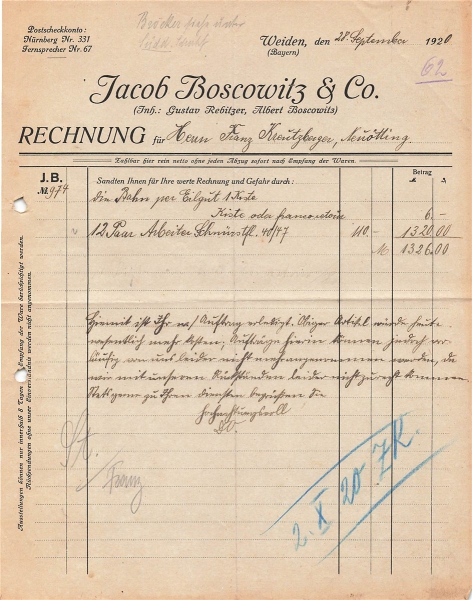 Postscheckkonto:
Nürnberg Nr. 331
Fernsprecher Nr. 67
Weiden, den 28. September 1920
(Bayern)
62
Jacob Boscowitz & Co.
(Inh.: Gustav Rebitzer, Albert Boscowitz)
RECHNUNG für Herrn Franz Kreutzberger, Neuötting.
Zahlbar hier rein netto ohne jeden Abzug sofort nach Empfang der Waren.
J. B.
№ 974
Sandten Ihnen für Ihre werte Rechnung und Gefahr durch:
Betrag
die Bahn per Eilgut 1 Kiste
Kiste oder franco retour 6.—
12 Paar Arbeiter Schnürstfl. 40/47 110.— 1320.00
M 1326.00
Hiermit ist Ihr Auftrag erledigt. Obiger Artikel würde heute
wesentlich mehr kosten, Aufträge hierin können jedoch vor-
läufig von uns leider nicht mehr angenommen werden, da
wir mit unseren leider nicht zurecht kommen
Stets gerne zu Ihren Diensten begrüssen Sie
hochachtungsvoll
DO.
Franz
2. X 20
Ausstellungen können nur innerhalb 8 Tagen nach Empfang der Ware berücksichtigt werden.
Rücksendungen ohne unser Einverständnis werden nicht angenommen.